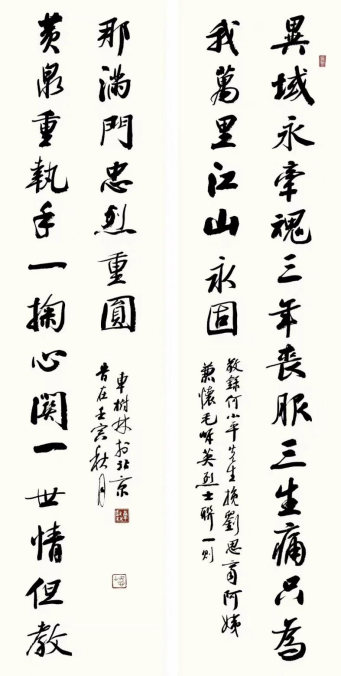 異域永牽魂三年喪服三生痛只為
我萬里江山永固
敬錄何小平先生挽劉思齊阿姨
兼懷毛岸英烈士聯一則
黄泉重執手一掬心関一世情但教
那滿門忠烈重圓
車樹林於北京
旹在壬寅秋月